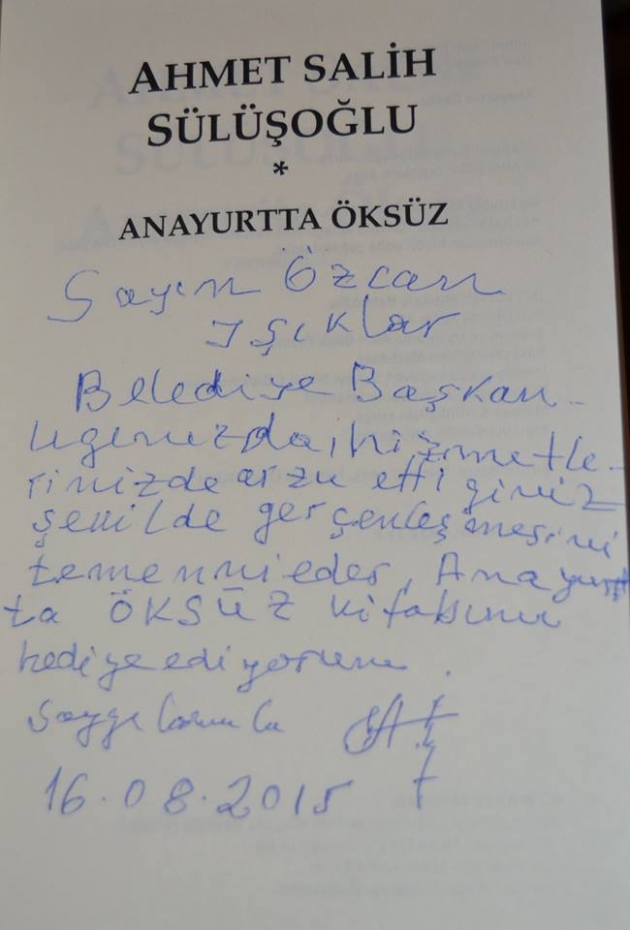 AHMET SALİH
SÜLÜŞOĞLU
*
ANAYURTTA ÖKSÜZ
Sayın Özcan
Işıklar
Belediye Başkan-
lığınızda, hizmetle-
rinizde arzu ettiğiniz
şekilde gerçekleşmesini
temenni eder, Anayurt
ta ÖKSÜZ kitabımı
hediye ediyorum.
Saygılarımla
16.08.2015